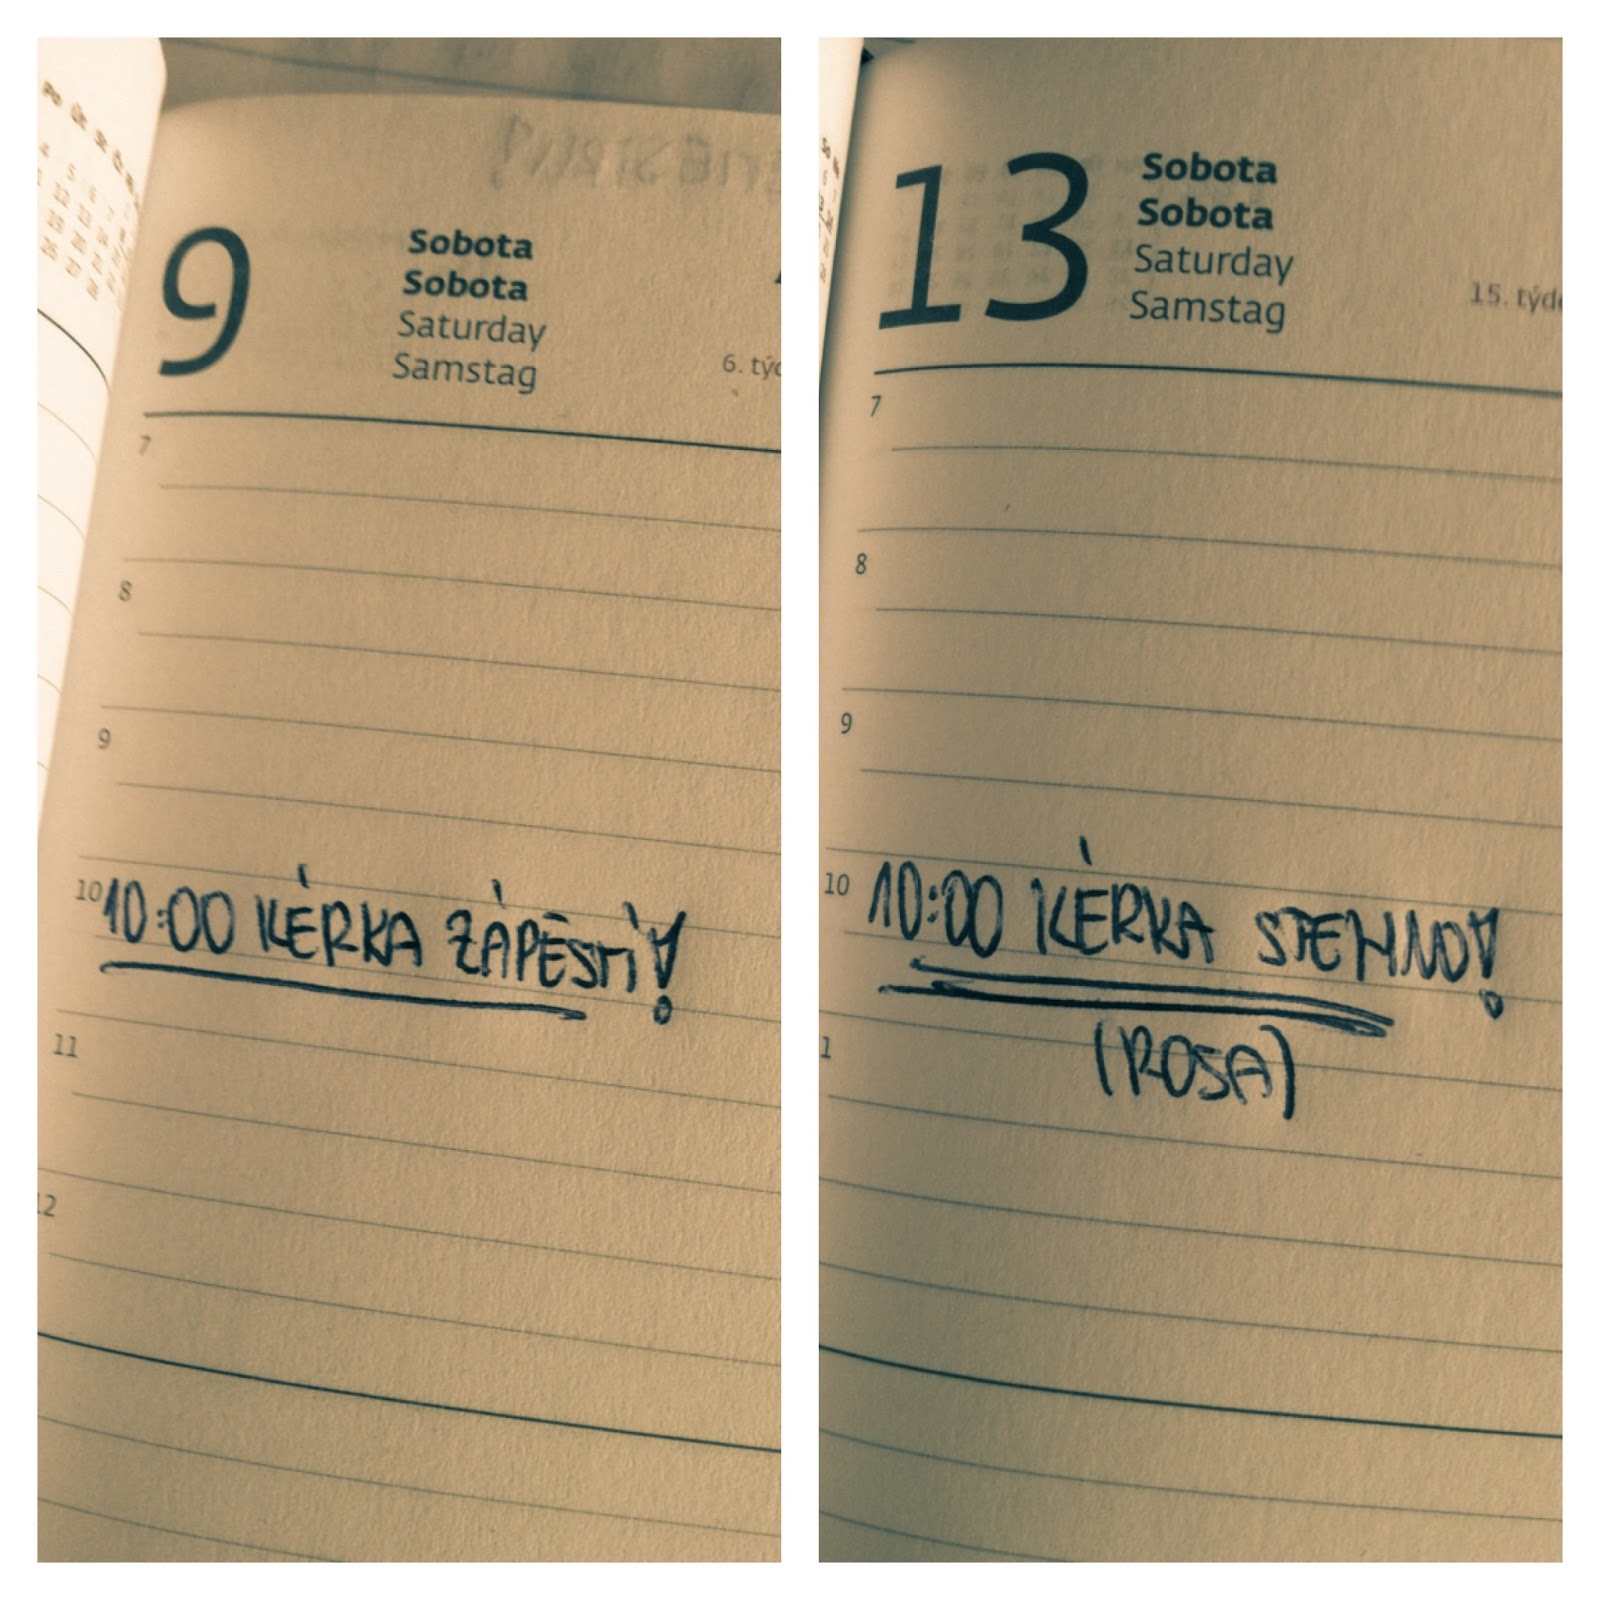 9
Sobota
Sobota
Saturday
Samstag
6. týd
7
8
9
10
10:00 KÉRKA ZÁPĚSTÍ!
11
12
13
Sobota
Sobota
Saturday
Samstag
15. týd
7
8
9
10
10:00 KÉRKA STEHNO!
(ROSA)
1